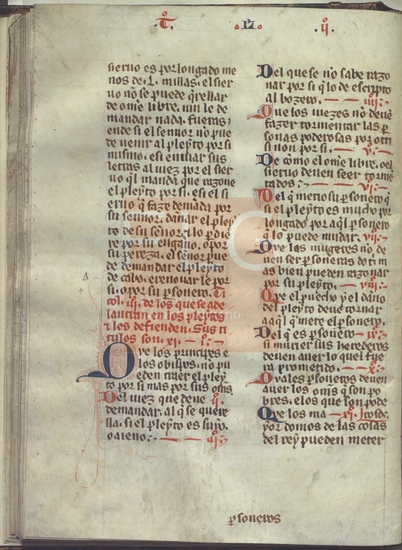 sieruo es por longado me
nos de .L. millas, el sier
uo no se puede q̃rellar
de om̃e libre, nin le de
mandar nada, fueras,
ende si el sennor no pue
de uenir al pleyto por si
mismo, o si enuiar sus
letras al iuez por el sier
uo q̃l manda que razone
el pleyto por si, e si el si
eruo q̃ faze demãda por
su sennor, danar el pleyto
de su sennor,
re por su enganno, o por
su pereza, el sennor pue
de demandar el pleyto
de cabo, e renouarle por
si, o por su ꝑsonero. Ti
tol. iij. de los que se ade
lantan en los pleytos
e los defienden. Sus ti
tolos son. xj.
Que los principes e
los obispos, no pu
eden traer el pley
to por si mas por sus om̃s.
Del iuez que deue .ij.
demandar, al q̃ se quere
lla, si el pleyto es suyo,
o aieno. iij.
Del que se nõ sabe razo
nar por si q̃lo de escripto
al bozero. iiij.
Que los iuezes no deue
fazer tormentar las ꝑ
sonas poderosas por otri
si non por si. v.
De cõmo el om̃e libre, o el
sieruo deuen seer tormẽ
tados. vi.
Del q̃ metio su ꝑsonero q̃
si el pleyto es mucho por
longado por aq̃l ꝑsonero
q̃ lo puede mudar. vij.
Que las mugieres no de
uen ser ꝑsoneras dotri m
as bien pueden razonar
por su pleyto. viij.
Que el puecho y el dano
del pleyto deue tornar
a aq̃l q̃ metie el ꝑsonero.
Del q̃ es ꝑsonero ix.
si muriere sus herederos
deuen auer lo quel fue
ra prometido. x.
Quales ꝑsoneros deuen
auer los om̃s q̃ son po
bres, e los que son pode
Que los ma xj. rosos.
yordomos de las cosas
del rey pueden meter
ꝑsoneros